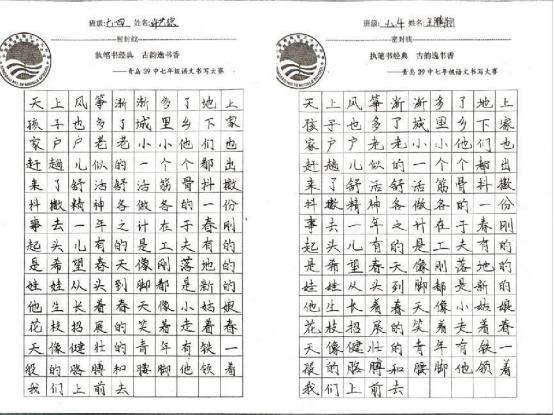 班级: 七.四 姓名:
密封线
执笔书经典 古韵逸书香
——青岛39中七年级语文书写大赛
天上风筝渐渐多了地上
孩子也多了城里乡下家
家户户老老小小他们也
赶趟儿似的一个个都出
来了舒活舒活筋骨抖擞
抖擞精神各做各的一份
事去一年之计在于春刚
起头儿有的是工夫有的
是希望春天像刚落地的
娃娃从头到脚都是新的
他生长着春天像小姑娘
花枝招展的笑着走着春
天像健壮的青年有铁一
般的胳膊和腰脚他领着
我们上前去
班级: 姓名:
密封线
执笔书经典 古韵逸书香
——青岛39中七年级语文书写大赛
天上风筝渐渐多了地上
孩子也多了城里乡下家
家户户老老小小他们也
赶趟儿似的一个个都出
来了舒活舒活筋骨抖擞
抖擞精神各做各的一份
事去一年之计在于春刚
起头儿有的是工夫有的
是希望春天像刚落地的
娃娃从头到脚都是新的
他生长着春天像小姑娘
花枝招展的笑着走着春
天像健壮的青年有铁一
般的胳膊和腰脚他领着
我们上前去